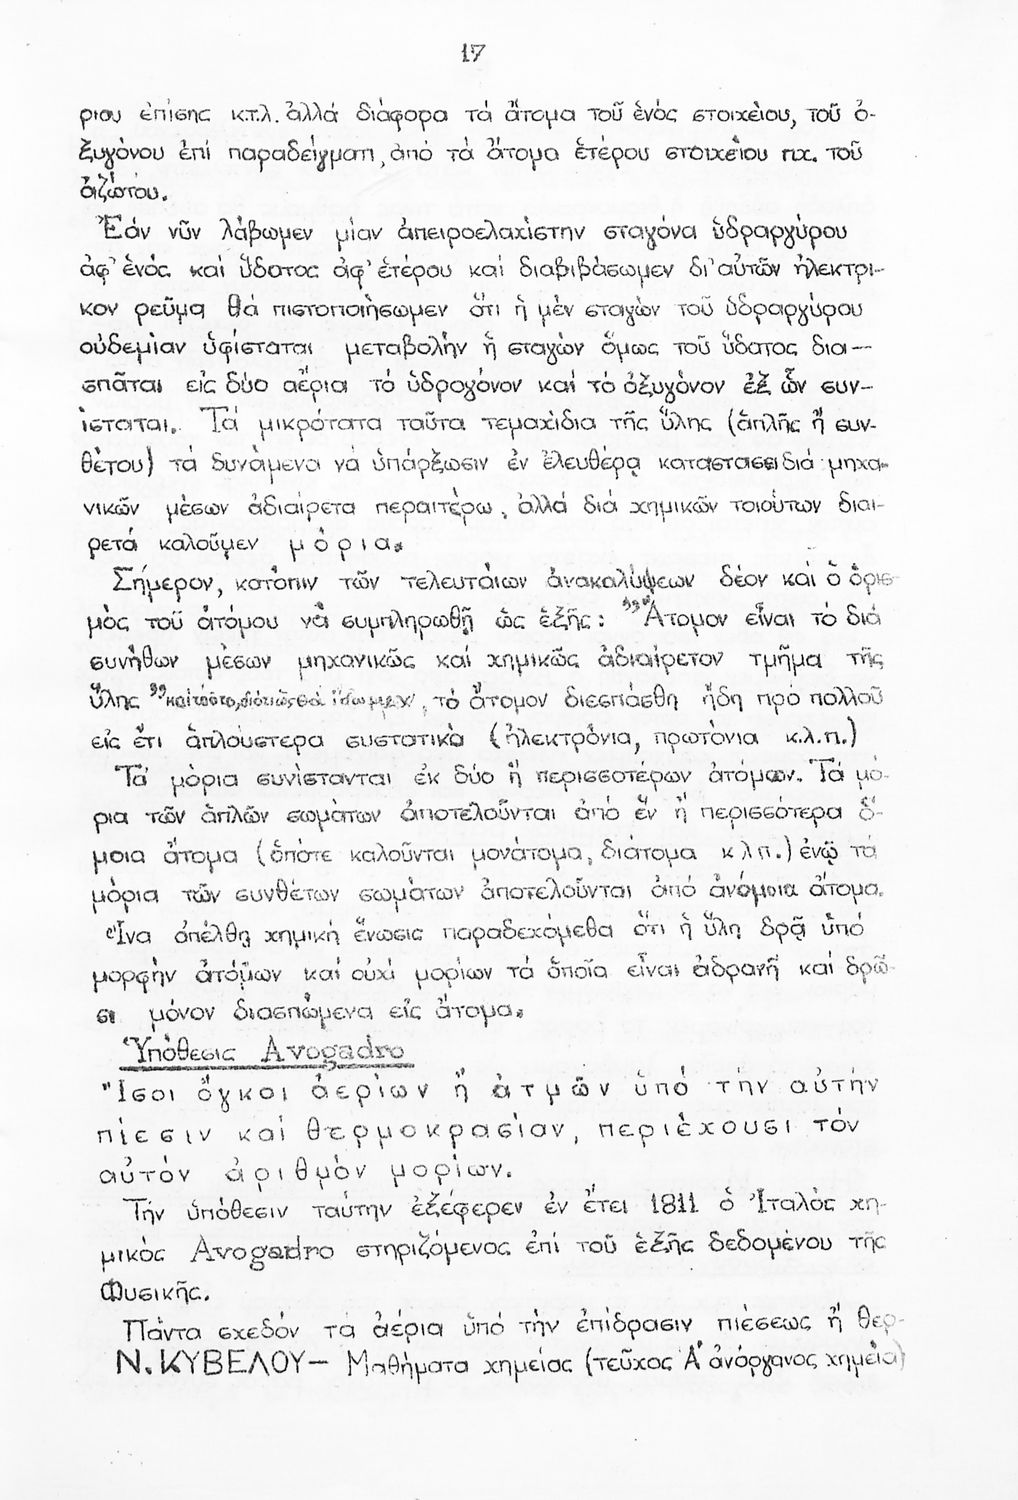 17
ριου ἐπίσης κ.τ.λ. ἀλλά διάφορα τά ἄτομα τοῦ ἑνός στοιχείου, τοῦ ὀ-
ξυγόνου ἐπί παραδείγματι, ἀπό τά ἄτομα ἑτέρου στοιχείου πχ. τοῦ
ἀζώτου.
Ἐάν νῦν λάβωμεν μίαν ἀπειροελαχίστην σταγόνα ὑδραργύρου
ἀφ' ἑνός καί ὕδατος ἀφ' ἑτέρου καί διαβιβάσωμεν δι' αὐτῶν ἠλεκτρι-
κον ρεῦμα θά πιστοποιήσωμεν ὅτι ἡ μέν σταγών τοῦ ὑδραργύρου
οὐδεμίαν ὑφίσταται μεταβολήν ἡ σταγών ὅμως τοῦ ὕδατος δια-
σπᾶται εἰς δύο ἀέρια τό ὑδρογόνον καί τό ὀξυγόνον ἐξ ὧν συν-
ίσταται. Τά μικρότατα ταῦτα τεμαχίδια τῆς ὕλης (ἁπλῆς ἤ συν-
θέτου) τά δυνάμενα νά ὑπάρξωσιν ἐν ἐλευθέρᾳ καταστασει διά μηχα-
νικῶν μέσων ἀδιαίρετα περαιτέρω, ἀλλά διά χημικῶν τοιούτων διαι-
ρετά καλοῦμεν μόρια.
Σήμερον, κατόπιν τῶν τελευταίων ἀνακαλύψεων δέον καί ὁ ὁρισ-
μός τοῦ ἀτόμου νά συμπληρωθῇ ὡς ἑξῆς: "Ἄτομον εἶναι τό διά
συνήθων μέσων μηχανικῶς καί χημικῶς ἀδιαίρετον τμῆμα τῆς
ὕλης" καί τοῦτο, διότι ὡς θά ἴδωμεν, τό ἄτομον διεσπάσθη ἤδη πρό πολλοῦ
εἰς ἔτι ἁπλούστερα συστατικά (ἠλεκτρόνια, πρωτόνια κ.λ.π.)
Τά μόρια συνίστανται ἐκ δύο ἤ περισσοτέρων ἀτόμων. Τά μό-
ρια τῶν ἁπλῶν σωμάτων ἀποτελοῦνται ἀπό ἕν ἤ περισσότερα ὅ-
μοια ἄτομα (ὁπότε καλοῦνται μονάτομα, διάτομα κ λ π.) ἐνῷ τά
μόρια τῶν συνθέτων σωμάτων ἀποτελοῦνται ἀπό ἀνόμοια ἄτομα.
Ἵνα ἐπέλθῃ χημική ἕνωσις παραδεχόμεθα ὅτι ἡ ὕλη δρᾷ ὑπό
μορφήν ἀτόμων καί οὐχί μορίων τά ὁποῖα εἶναι ἀδρανῆ καί δρῶ-
σι μόνον διασπώμενα εἰς ἄτομα.
Ὑπόθεσις Avogadro
"Ἴσοι ὄγκοι ἀερίων ἤ ἀτμῶν ὑπό τήν αὐτήν
πίεσιν καί θερμοκρασίαν, περιέχουσι τόν
αὐτόν ἀριθμόν μορίων.
Τήν ὑπόθεσιν ταύτην ἐξέφερεν ἐν ἔτει 1811 ὁ Ἰταλός χη-
μικός Avogadro στηριζόμενος ἐπί τοῦ ἑξῆς δεδομένου τῆς
Φυσικῆς.
Πάντα σχεδόν τά ἀέρια ὑπό τήν ἐπίδρασιν πιέσεως ἤ θερ-
Ν. ΚΥΒΕΛΟΥ- Μαθήματα χημείας (τεῦχος Α' ἀνόργανος χημεία)